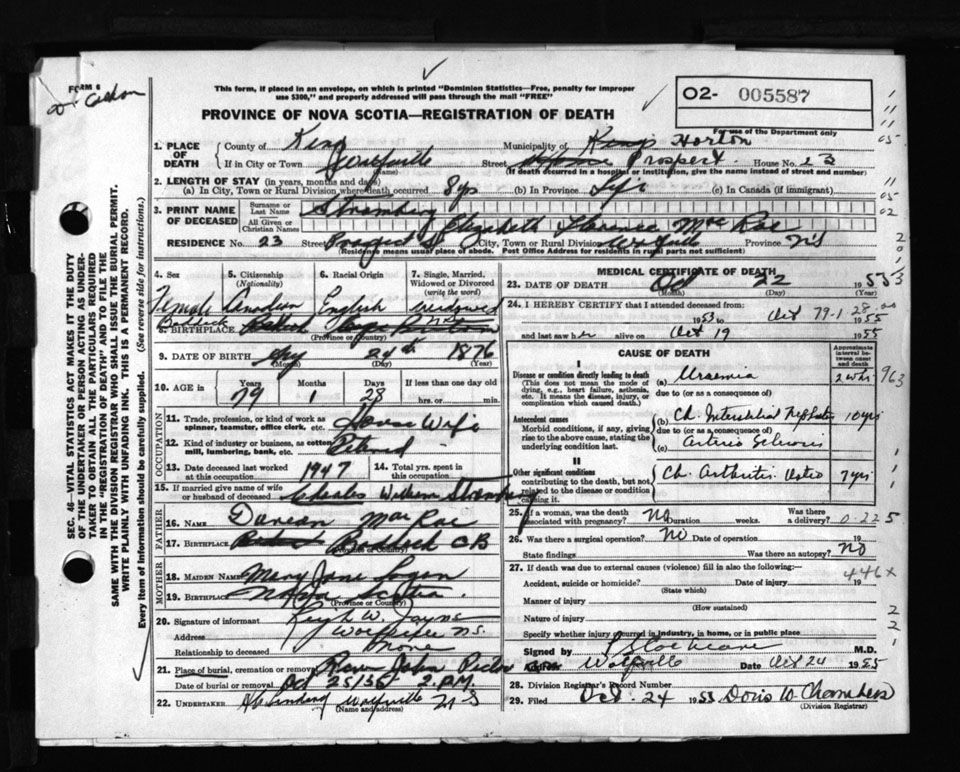 FORM 6
This form, if placed in an envelope, on which is printed "Dominion Statistics—Free, penalty for improper
use $300," and properly addressed will pass through the mail "FREE"
PROVINCE OF NOVA SCOTIA—REGISTRATION OF DEATH
02- 005587
For use of the Department only
1. PLACE OF DEATH
County of Kings
Municipality of Kings Horton
If in City or Town Wolfville
(Name)
Street Prospect House No. 23
(If death occurred in a hospital or institution, give the name instead of street and number)
2. LENGTH OF STAY (in years, months and days)
(a) In City, Town or Rural Division where death occurred 8 yrs (b) In Province Life (c) In Canada (if immigrant)
3. PRINT NAME OF DECEASED
Surname or Last Name Stromberg
All Given or Christian Names Elizabeth Florence Mac Rae
RESIDENCE No. 23 Street Prospect St City, Town or Rural Division Wolfville Province N S
(Residence means usual place of abode. Post Office Address for residents in rural parts not sufficient)
4. Sex Female
5. Citizenship (Nationality) Canadian
6. Racial Origin English
7. Single, Married, Widowed or Divorced (write the word) Widowed
8. BIRTHPLACE Baddeck Cape Breton
(Province or Country)
9. DATE OF BIRTH 24th 1876
(Month) (Day) (Year)
10. AGE in Years 79 Months 1 Days 28 If less than one day old hrs. or min.
OCCUPATION
11. Trade, profession, or kind of work as spinner, teamster, office clerk, etc. House Wife
12. Kind of industry or business, as cotton mill, lumbering, bank, etc. Retired
13. Date deceased last worked at this occupation 1947 14. Total yrs. spent in this occupation
15. If married give name of wife or husband of deceased Charles William Stromberg
FATHER
16. NAME Duncan Mac Rae
17. BIRTHPLACE Baddeck CB
(Province or Country)
MOTHER
18. MAIDEN NAME Mary Jane Logan
19. BIRTHPLACE Nova Scotia
(Province or Country)
20. Signature of informant W.
Address Wolfville NS.
Relationship to deceased None
21. Place of burial, cremation or removal River John Pictou
Date of burial or removal Oct 25/55 2 P.M.
22. UNDERTAKER Wolfville N S
(Name and address)
MEDICAL CERTIFICATE OF DEATH
23. DATE OF DEATH Oct 22 1955
(Month) (Day) (Year)
24. I HEREBY CERTIFY that I attended deceased from:
1953 to Oct 1955
and last saw her alive on Oct 19 1955
CAUSE OF DEATH
Approximate interval between onset and death
I
Disease or condition directly leading to death
(This does not mean the mode of dying, e.g., heart failure, asthenia, etc. It means the disease, injury, or complication which caused death.)
(a) Uraemia 2 wks
due to (or as a consequence of)
Antecedent causes
Morbid conditions, if any, giving rise to the above cause, stating the underlying condition last.
(b) Ch. Interstitial Nephritis 10 yrs
due to (or as a consequence of)
(c) Arterio Sclerosis
II
Other significant conditions
contributing to the death, but not related to the disease or condition causing it.
Ch. Arthritis Osteo 7 yrs
25. If a woman, was the death associated with pregnancy? No Duration weeks. Was there a delivery?
26. Was there a surgical operation? No Date of operation 19
State findings Was there an autopsy? No
27. If death was due to external causes (violence) fill in also the following:—
446 x
Accident, suicide or homicide? Date of injury 19
(State which)
Manner of injury
(How sustained)
Nature of injury
Specify whether injury occurred in industry, in home, or in public place
Signed by Cochrane M.D.
Wolfville Date Oct 24 1955
28. Division Registrar's Record Number
29. Filed Oct. 24 1955 Doris W Chambers
(Division Registrar)
SEC. 46—VITAL STATISTICS ACT MAKES IT THE DUTY
OF THE UNDERTAKER OR PERSON ACTING AS UNDER-
TAKER TO OBTAIN ALL THE PARTICULARS REQUIRED
IN THE "REGISTRATION OF DEATH" AND TO FILE THE
SAME WITH THE DIVISION REGISTRAR WHO SHALL ISSUE THE BURIAL PERMIT.
WRITE PLAINLY WITH UNFADING INK. THIS IS A PERMANENT RECORD.
Every item of information should be carefully supplied. (See reverse side for instructions.)